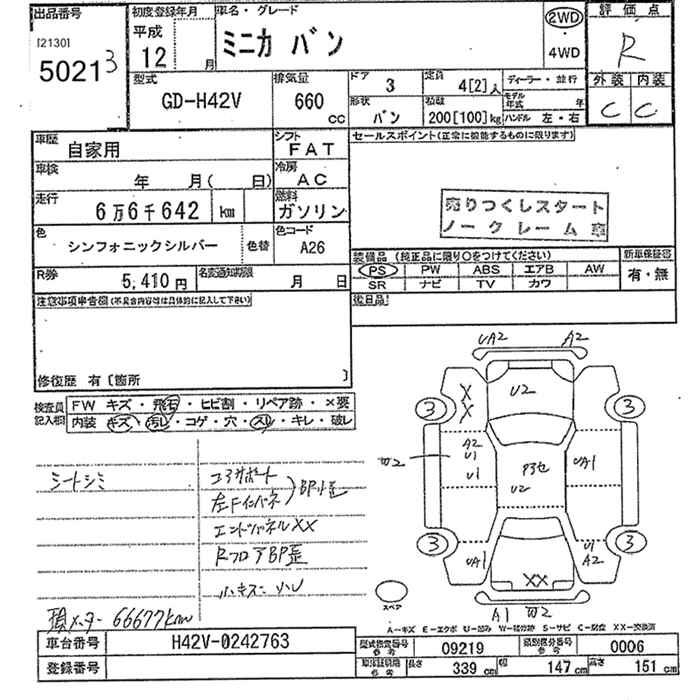 出品番号 初度登録年月 車名・グレード 2WD 評価点
[2130] 平成 ミニカ バン ・ R
5021 3 12 月 4WD
型式 排気量 ドア 3 定員 4[2]人 ディーラー・並行 外装 内装
GD-H42V 660 cc 形状 バン 積載 200[100]kg モデル年式 年 C C
ハンドル 左・右
車歴 自家用 シフト FAT セールスポイント(正常に機能するものに限ります)
車検 年 月( 日) 冷房 AC
走行 6万6千642 km 燃料 ガソリン
売りつくしスタート
ノークレーム
色 シンフォニックシルバー 色替 色コード A26
装備品 (純正品に限り○をつけてください) 新車保証書
PS PW ABS エアB AW 有・無
SR ナビ TV カワ
R券 5,410円 名変通知期限 月 日
後日品
注意事項申告欄(不具合内容等は具体的に記入して下さい)
修復歴 有〔箇所 〕
検査員記入欄 FW キズ・飛石・ヒビ割・リペア跡・×要
内装 キズ・汚レ・コゲ・穴・スレ・キレ・破レ
シートシミ
コアサポート
左Fインパネ
BP小歪
エンドパネルXX
RフロアBP歪
小キズ 凹
積メーター 66677km
UA2 A2
X U2
X
3 3
A2
U1
W2 U1 U2 UA1
3 3
UA1 U1
A2
XX
A1 W2
スペア
A-キズ E-エクボ U-凹み W-補修跡 S-サビ C-腐食 XX-交換済
車台番号 H42V-0242763 型式指定番号 参考 09219 類別区分番号 参考 0006
登録番号 車体証明用 参考 長さ 339 cm 幅 147 cm 高さ 151 cm